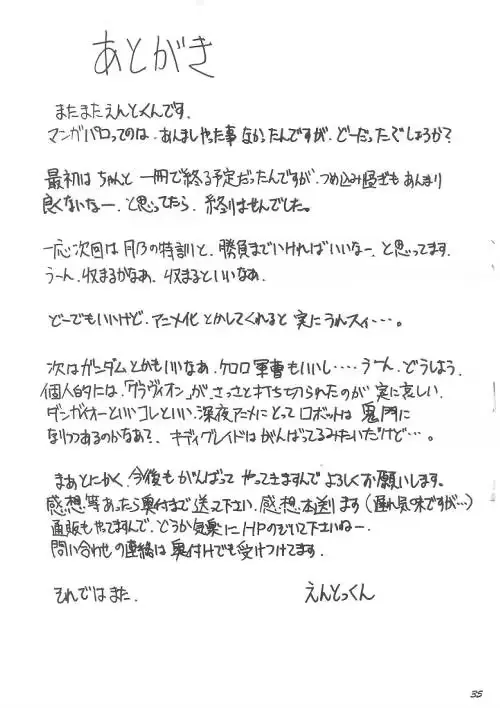 あとがき
またまたえんとっくんです.
マンガパロってのは.あんましやった事なかったんですが.どーだったでしょうか?
最初はちゃんと一冊で終る予定だったんですが.つめ込み過ぎもあんまり
良くないなー.と思ってたら.終りませんでした。
一応次回は月乃の特訓と.勝負までいければいいなー.と思ってます.
うーん.収まるかなあ.収まるといいなあ.
どーでもいいけど.アニメ化とかしてくれると実にうれスィ…。
次はガンダムとかもいいなあ.ケロロ軍曹もいいし‥‥うーん.どうしよう.
個人的には.「グラヴィオン」がさっさと打ち切られたのが実に哀しい.
ダンガイオーといいコレといい.深夜アニメにとってロボットは鬼門に
なりつつあるのかなあ?.キディグレイドはがんばってるみたいだけど…。
まあとにかく.今後もがんばってやってきますんでよろしくお願いします。
感想等あったら奥付まで送って下さい.感想本送ります(遅れ気味ですが…)
通販もやってますんで.どうか気楽にHPのぞいて下さいねー.
問い合わせの連絡は奥付けでも受けつけてます.
それではまた.
えんとっくん
35